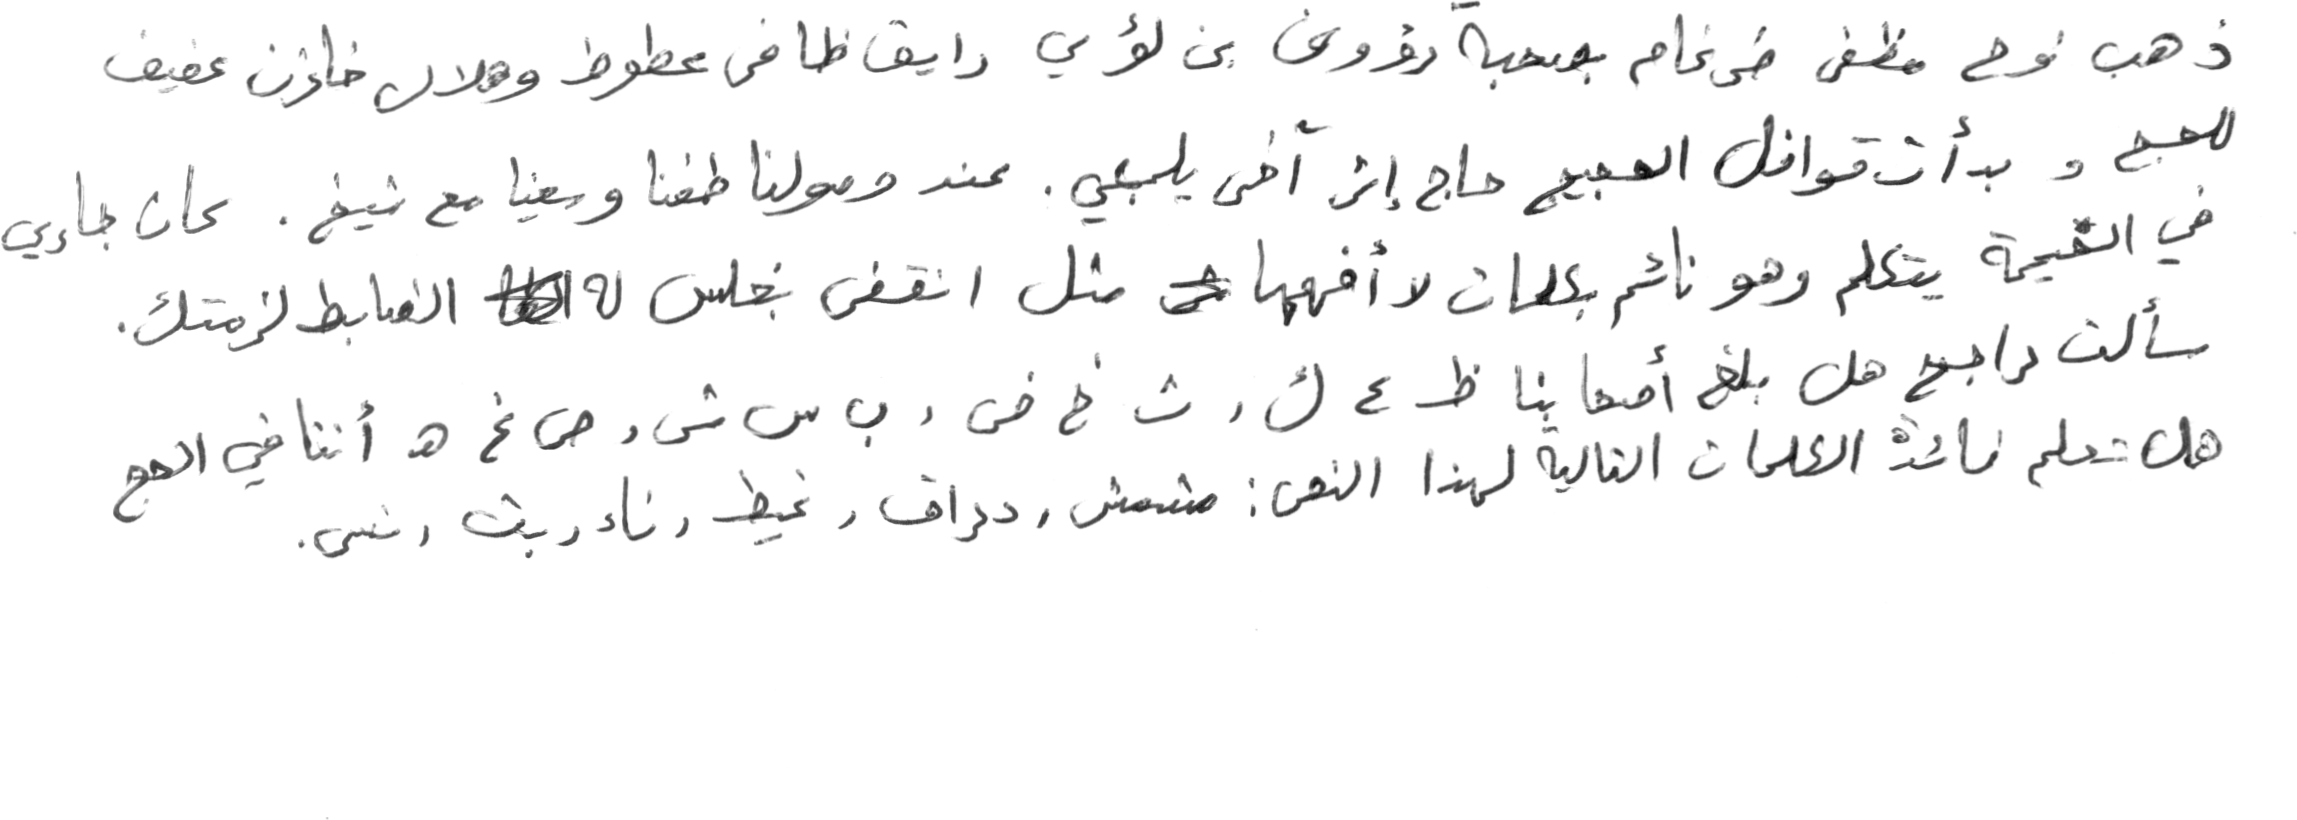 ذهب نوح مظفر ضرغام بصحبة رؤوف بن لؤي رايق ظافر عطوط وهلال خازن عفيف
للحج و بدأت قوافل الحجيج حاج إثر آخر يلبي . عند وصولنا طفنا وسعينا مع شيخ . كان جاري
في الخيمة يتكلم وهو نائم بكلمات لا أفهمها مثل انقض بخلس لا الضابط لزمتك .
سألت راجح هل بلغ أصحابنا ظ ع ك ، ث خ ض ، ب س ش ، ص غ ه أننا في الحج
هل تعلم فائدة الكلمات التالية لهذا النص : مشمش ، دراق ، غيظ ، ناء ، بث ، نس .